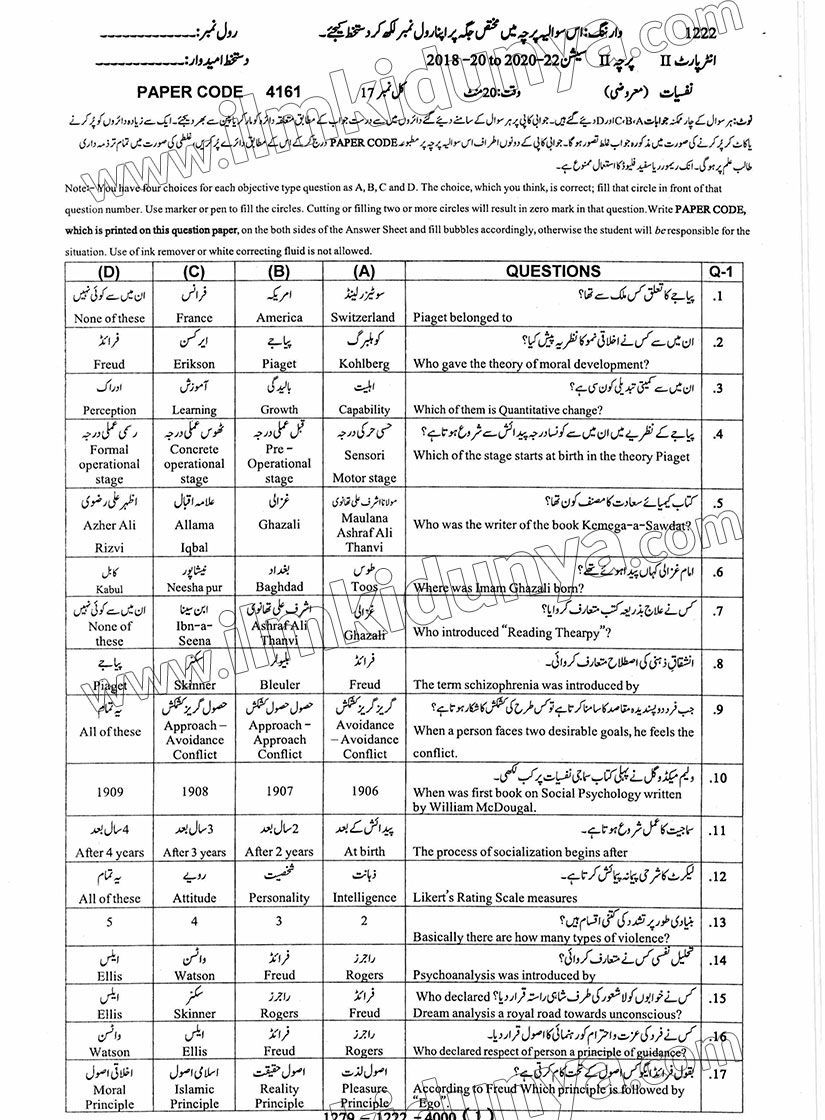 1222 وارننگ: اس سوالیہ پرچہ میں مختص جگہ پر اپنا رول نمبر لکھ کر دستخط کیجئے۔ رول نمبر:
انٹر پارٹ II پرچہ II سیشن 2018-20 to 2020-22 دستخط امیدوار:
نفسیات (معروضی) وقت: 20 منٹ کل نمبر 17 PAPER CODE 4161
نوٹ: ہر سوال کے چار ممکنہ جوابات A، B، C اور D دیئے گئے ہیں۔ جوابی کاپی پر ہر سوال کے سامنے دیئے گئے دائروں میں سے درست جواب کے مطابق متعلقہ دائرہ کو مارکر یا پین سے بھر دیجئے۔ ایک سے زیادہ دائروں کو پُر کرنے
یا کاٹ کر پُر کرنے کی صورت میں مذکورہ جواب غلط تصور ہوگا۔ جوابی کاپی کے دونوں اطراف اس سوالیہ پرچہ پر مطبوعہ PAPER CODE درج کر کے اس کے مطابق دائرے پُر کریں، غلطی کی صورت میں تمام تر ذمہ داری
طالب علم پر ہوگی۔ انک ریمور یا سفید فلیوڈ کا استعمال ممنوع ہے۔
Note:- You have four choices for each objective type question as A, B, C and D. The choice, which you think, is correct; fill that circle in front of that
question number. Use marker or pen to fill the circles. Cutting or filling two or more circles will result in zero mark in that question.Write PAPER CODE,
which is printed on this question paper, on the both sides of the Answer Sheet and fill bubbles accordingly, otherwise the student will be responsible for the
situation. Use of ink remover or white correcting fluid is not allowed.
(D) (C) (B) (A) QUESTIONS Q-1
ان میں سے کوئی نہیں فرانس امریکہ سوئیٹزرلینڈ پیاجے کا تعلق کس ملک سے تھا؟ .1
None of these France America Switzerland Piaget belonged to
فرائڈ ایرکسن پیاجے کوہلبرگ ان میں سے کس نے اخلاقی نمو کا نظریہ پیش کیا؟ .2
Freud Erikson Piaget Kohlberg Who gave the theory of moral development?
ادراک آموزش بالیدگی اہلیت ان میں سے کمیتی تبدیلی کون سی ہے؟ .3
Perception Learning Growth Capability Which of them is Quantitative change?
رسمی عملی درجہ ٹھوس عملی درجہ قبل عملی درجہ حسی حرکی درجہ پیاجے کے نظریے میں ان میں سے کونسا درجہ پیدائش سے شروع ہوتا ہے؟ .4
Formal operational stage Concrete operational stage Pre – Operational stage Sensori Motor stage Which of the stage starts at birth in the theory Piaget
اظہر علی رضوی علامہ اقبال غزالی مولانا اشرف علی تھانوی کتاب کیمیائے سعادت کا مصنف کون تھا؟ .5
Azher Ali Rizvi Allama Iqbal Ghazali Maulana Ashraf Ali Thanvi Who was the writer of the book Kemega-a-Sawdat?
کابل نیشاپور بغداد طوس امام غزالی کہاں پیدا ہوئے تھے؟ .6
Kabul Neesha pur Baghdad Toos Where was Imam Ghazali born?
ان میں سے کوئی نہیں ابن سینا اشرف علی تھانوی غزالی کس نے علاج بذریعہ کتب متعارف کروایا؟ .7
None of these Ibn-a-Seena Ashraf Ali Thanvi Ghazali Who introduced “Reading Thearpy”?
پیاجے سکنر بلیولر فرائڈ انشقاق ذہنی کی اصطلاح متعارف کروائی۔ .8
Piaget Skinner Bleuler Freud The term schizophrenia was introduced by
یہ تمام حصول گریز کشمکش حصول حصول کشمکش گریز گریز کشمکش جب فرد دو پسندیدہ مقاصد کا سامنا کرتا ہے تو کس طرح کی کشمکش کا شکار ہوتا ہے؟ .9
All of these Approach – Avoidance Conflict Approach – Approach Conflict Avoidance – Avoidance Conflict When a person faces two desirable goals, he feels the conflict.
ولیم میکڈوگل نے پہلی کتاب سماجی نفسیات پر کب لکھی۔ .10
1909 1908 1907 1906 When was first book on Social Psychology written
by William McDougal.
4 سال بعد 3 سال بعد 2 سال بعد پیدائش کے بعد سماجیت کا عمل شروع ہوتا ہے۔ .11
After 4 years After 3 years After 2 years At birth The process of socialization begins after
یہ تمام رویے شخصیت ذہانت لیکرٹ کا شرحی پیمانہ پیمائش کرتا ہے۔ .12
All of these Attitude Personality Intelligence Likert's Rating Scale measures
5 4 3 2 بنیادی طور پر تشدد کی کتنی اقسام ہیں؟ .13
Basically there are how many types of violence?
ایلس واٹسن فرائڈ راجرز تحلیل نفسی کس نے متعارف کروائی؟ .14
Ellis Watson Freud Rogers Psychoanalysis was introduced by
ایلس سکنر راجرز فرائڈ کس نے خوابوں کو لاشعور کی طرف شاہی راستہ قرار دیا؟ Who declared .15
Ellis Skinner Rogers Freud Dream analysis a royal road towards unconscious?
واٹسن ایلس فرائڈ راجرز کس نے فرد کی عزت واحترام کو رہنمائی کا اصول قرار دیا۔ .16
Watson Ellis Freud Rogers Who declared respect of person a principle of guidance?
اخلاقی اصول اسلامی اصول اصول حقیقت اصول لذت بقول فرائڈ ایگو کس اصول کے تحت کام کرتی ہے؟ .17
Moral Principle Islamic Principle Reality Principle Pleasure Principle According to Freud Which principle is followed by “Ego”.
1279 – 1222 – 4000 ( 1 )
www.ilmkidunya.com
www.ilmkidunya.com
www.ilmkidunya.com